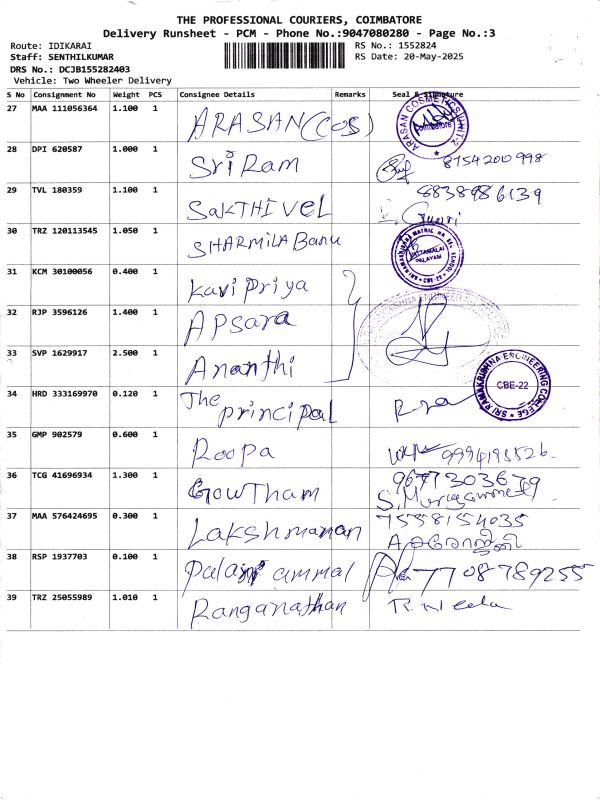 THE PROFESSIONAL COURIERS, COIMBATORE
Delivery Runsheet - PCM - Phone No.:9047080280 - Page No.:3
Route: IDIKARAI RS No.: 1552824
Staff: SENTHILKUMAR RS Date: 20-May-2025
DRS No.: DCJB155282403
Vehicle: Two Wheeler Delivery
S No Consignment No Weight PCS Consignee Details Remarks Seal & Signature
27 MAA 111056364 1.100 1 ARASAN (COS) ARASAN COSMETICS UNIT-2 Coimbatore
28 DPI 620587 1.000 1 Sri Ram 8154200998
29 TVL 180359 1.100 1 SAKTHI VEL 6838986139
30 TRZ 120113545 1.050 1 SHARMILA Banu MATRIC HR. SEC. SCHOOL VATTAMALAI PALAYAM CBE-22
31 KCM 30100056 0.400 1 Kavi Priya
32 RJP 3596126 1.400 1 Apsara
33 SVP 1629917 2.500 1 Ananthi
34 HRD 333169970 0.120 1 The principal SRI RAMAKRISHNA ENGINEERING COLLEGE CBE-22
35 GMP 902579 0.600 1 Roopa
36 TCG 41696934 1.300 1 Gowtham 9677303679
37 MAA 576424695 0.300 1 Lakshmanan 7558154035
38 RSP 1937703 0.100 1 Palani ammal 7708789255
39 TRZ 25055989 1.010 1 Ranganathan R. Neela